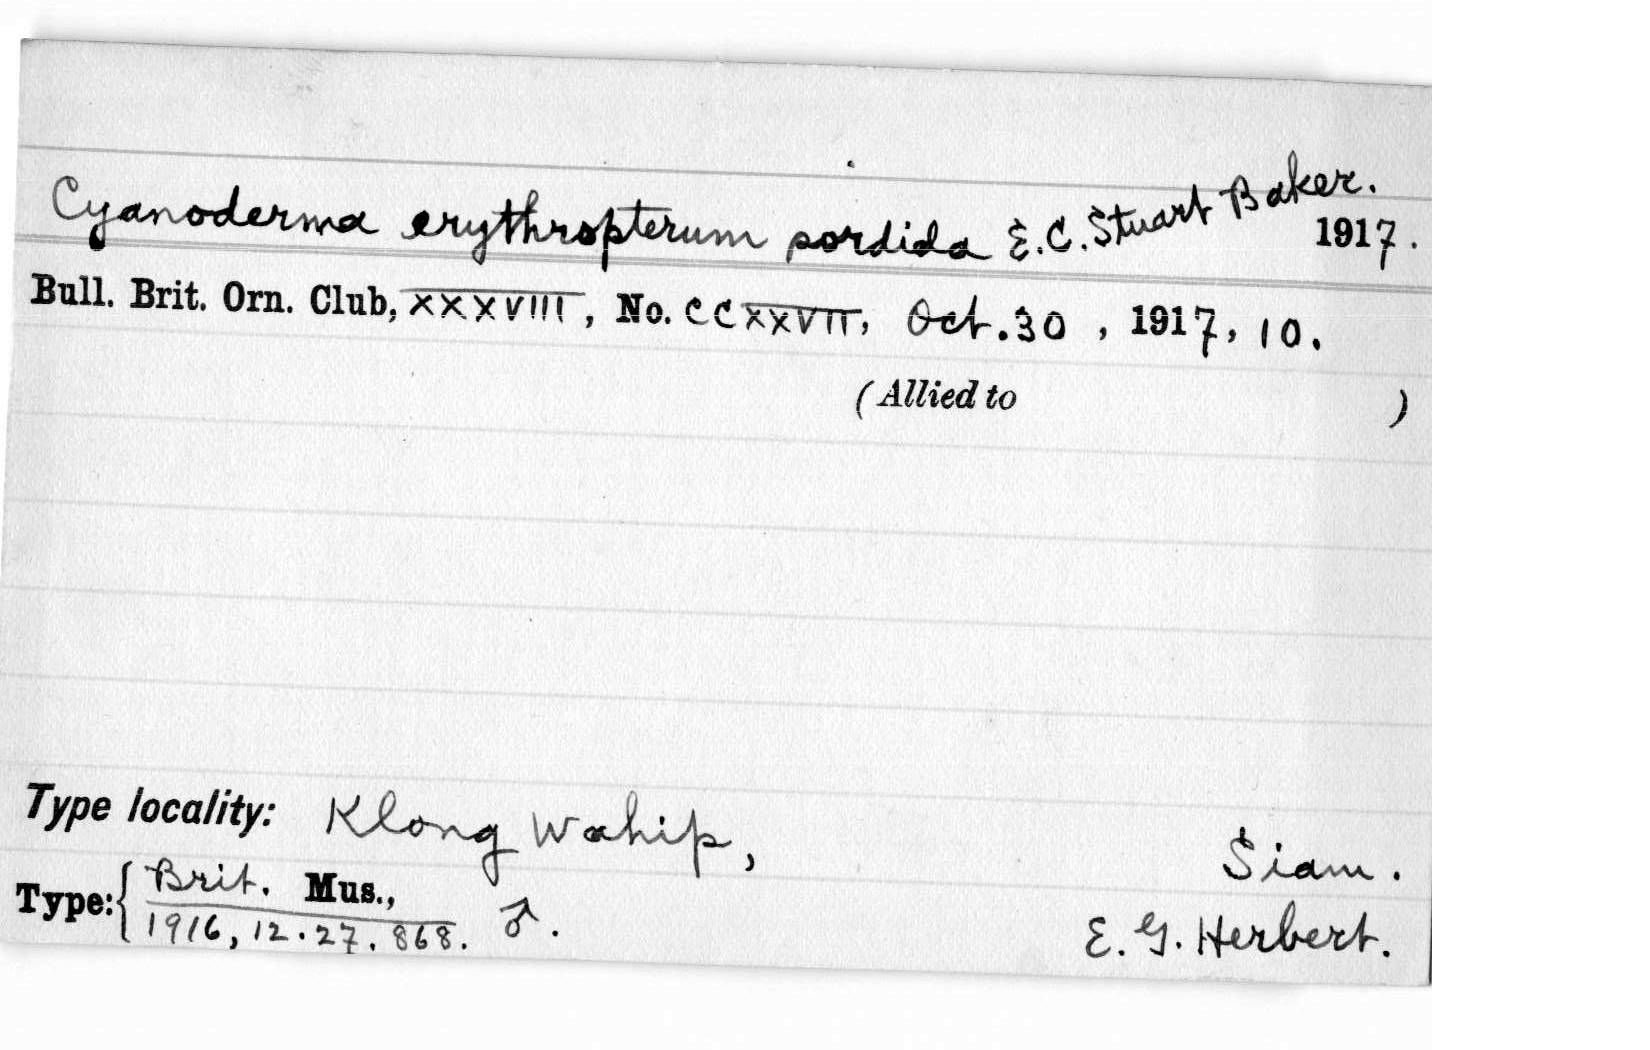 Cyanoderma erythropterum sordida E.C. Stuart Baker. 1917.
Bull. Brit. Orn. Club, XXXVIII, No. CCXXVII, Oct. 30, 1917, 10.
(Allied to )
Type locality: Klong Wahip, Siam.
Type: { Brit. Mus., 1916, 12.27. 868. ♂. E. G. Herbert.